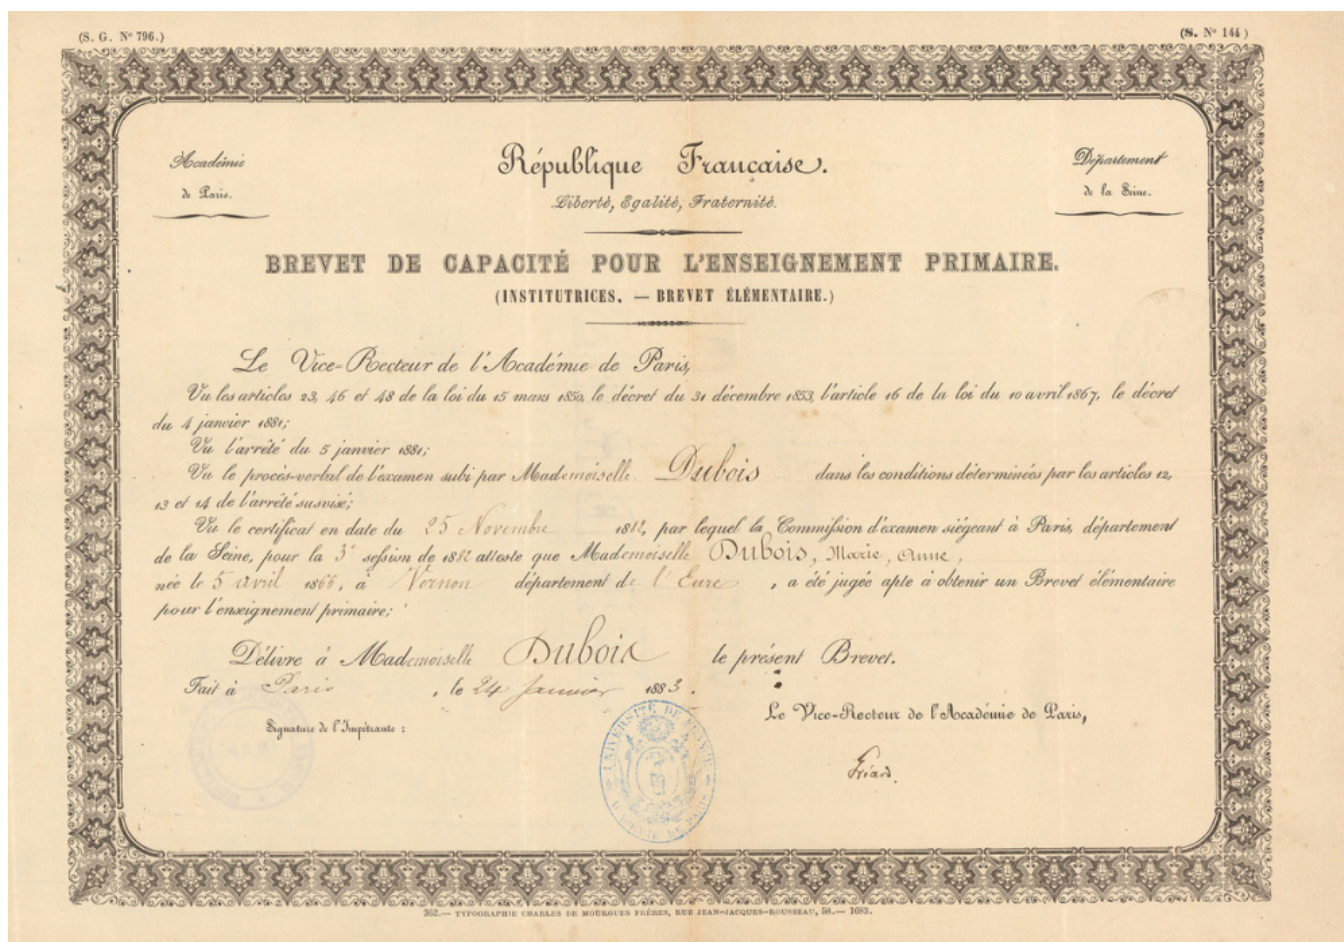 (S. G. Nº 796.)
(S. Nº 144)
Académie
de Paris.
République Française.
Liberté, Egalité, Fraternité.
Département
de la Seine.
BREVET DE CAPACITÉ POUR L'ENSEIGNEMENT PRIMAIRE.
(INSTITUTRICES. — BREVET ÉLÉMENTAIRE.)
Le Vice-Recteur de l'Académie de Paris,
Vu les articles 23, 46 et 48 de la loi du 15 mars 1850, le décret du 31 décembre 1853, l'article 16 de la loi du 10 avril 1867, le décret
du 4 janvier 1881;
Vu l'arrêté du 5 janvier 1881;
Vu le procès-verbal de l'examen subi par Mademoiselle Dubois dans les conditions déterminées par les articles 12,
13 et 14 de l'arrêté susvisé;
Vu le certificat en date du 25 Novembre 1882, par lequel la Commission d'examen siégeant à Paris, département
de la Seine, pour la 3e session de 1882 atteste que Mademoiselle Dubois, Marie, Anne,
née le 5 avril 1866, à Vernon département de l'Eure, a été jugée apte à obtenir un Brevet élémentaire
pour l'enseignement primaire;
Délivre à Mademoiselle Dubois le présent Brevet.
Fait à Paris, le 24 Janvier 1883.
Signature de l'Impétrante :
Le Vice-Recteur de l'Académie de Paris,
UNIVERSITÉ DE FRANCE
ACADÉMIE DE PARIS
362.— TYPOGRAPHIE CHARLES DE MOURGUES FRÈRES, RUE JEAN-JACQUES-ROUSSEAU, 58.— 1682.